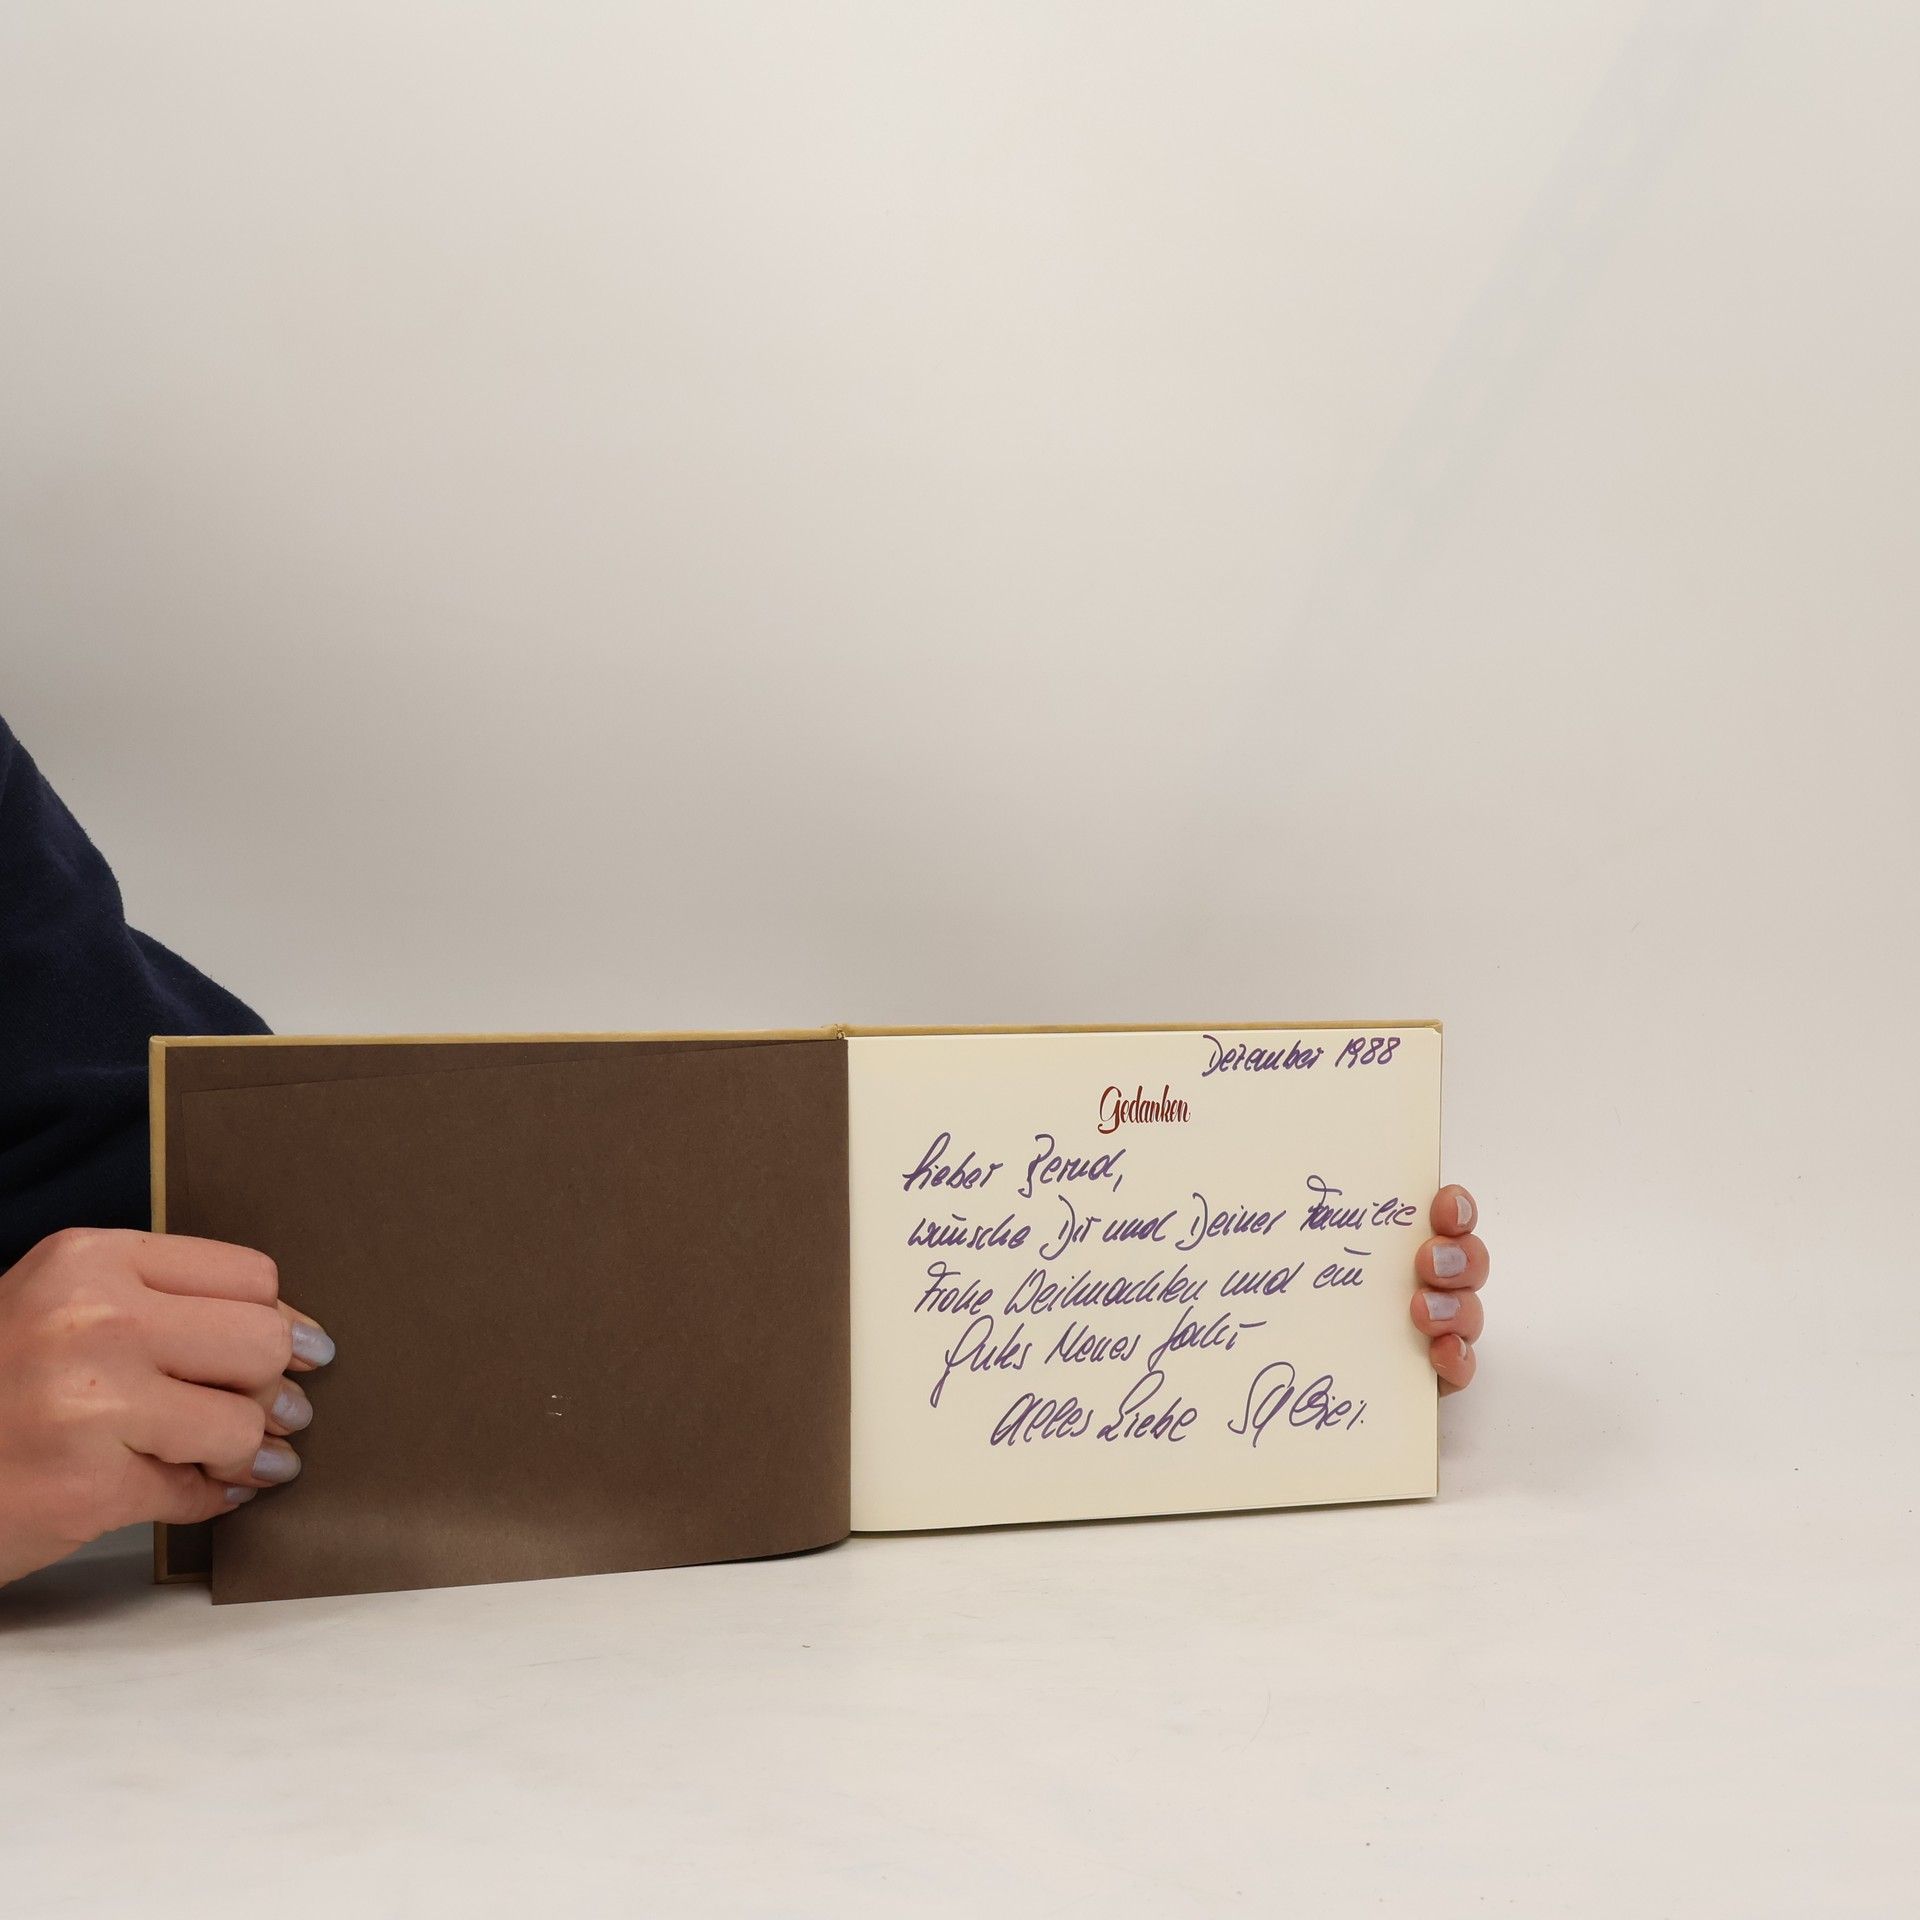 Dezember 1988
Gedanken
Lieber Bernd,
wünsche Dir und Deiner Familie
Frohe Weihnachten und ein
Gutes Neues Jahr
Alles Liebe